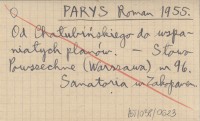 PARYS Roman 1955.
Od Chałubińskiego do wspa-
niałych planów. – Słowo
Powszechne (Warszawa) nr 96.
Sanatoria w Zakopanem